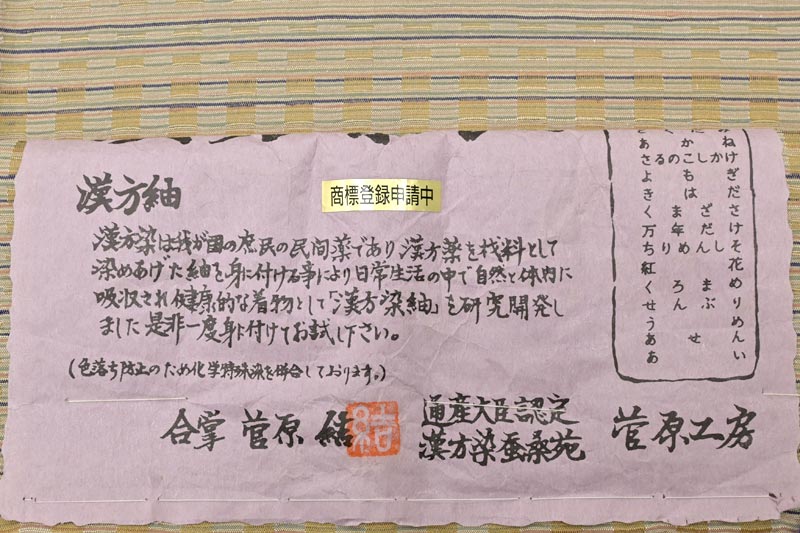 ねけぎださけそ花めりめんい
あさよきく万ち紅くせうああ
漢方紬
商標登録申請中
漢方染は我が国の庶民の民間薬であり漢方薬を材料として
染めあげた紬を身に付ける事により日常生活の中で自然と体内に
吸収され健康的な着物として「漢方染紬」を研究開発し
ました是非一度身に付けてお試し下さい。
(色落ち防止のため化学特殊染を併合しております。)
合掌 菅原 結
通産大臣認定
漢方染蚕桑苑
菅原工房